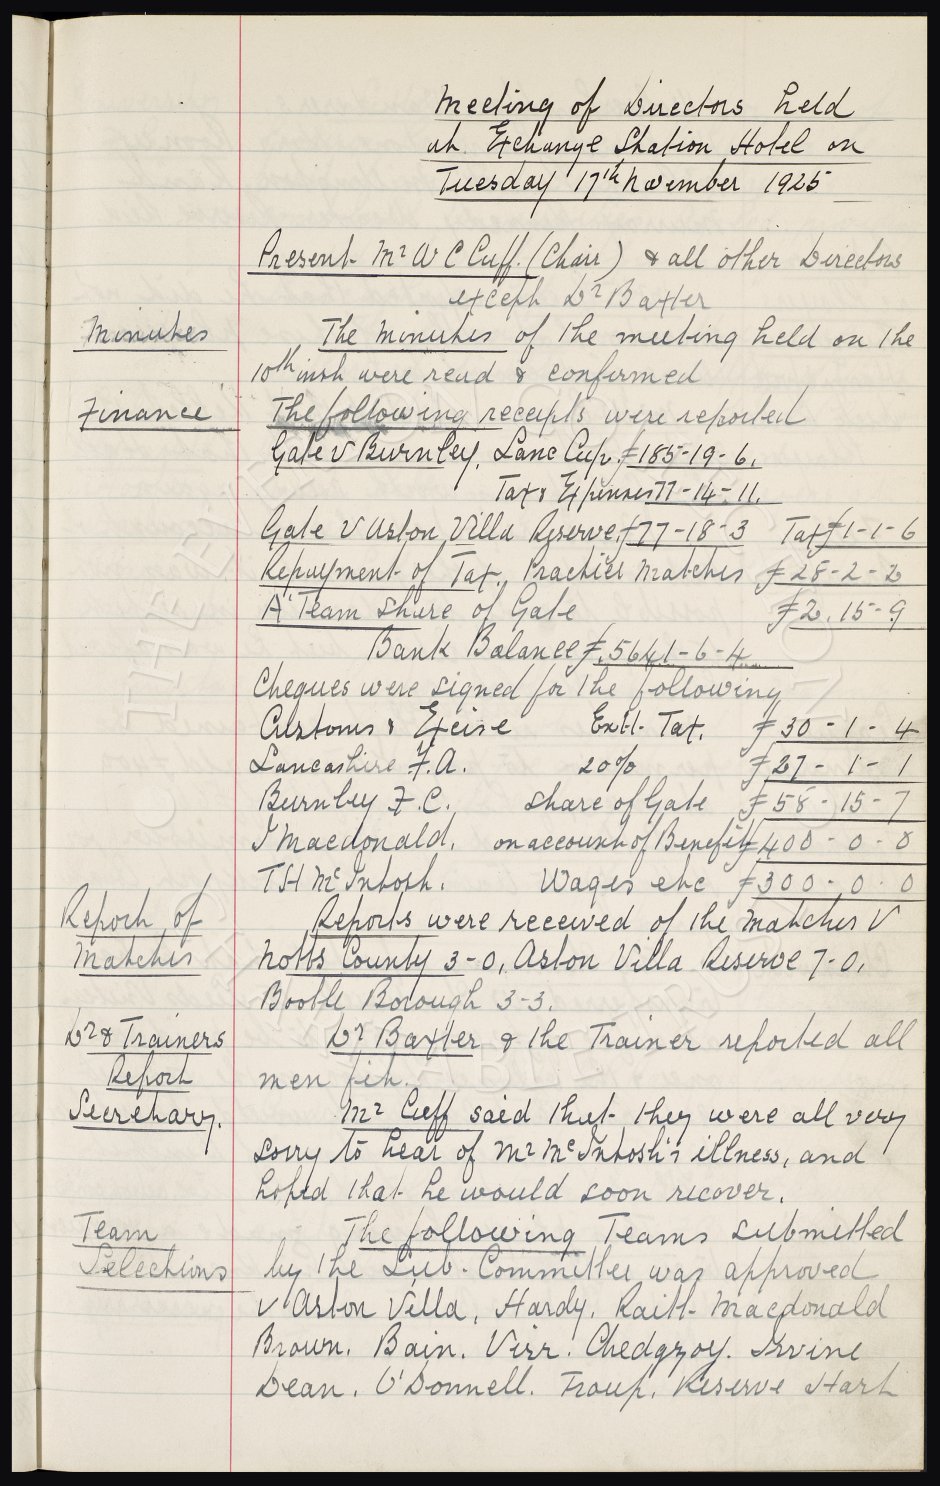 Meeting of Directors held
at Exchange Station Hotel on
Tuesday 17th November 1925
Present Mr W C Cuff. (Chair) & all other Directors
except Dr Baxter
Minutes
The Minutes of the meeting held on the
10th inst were read & confirmed
Finance
The following receipts were reported
Gate v Burnley, Lanc Cup. £185-19-6.
Tax & Expenses 77-14-11.
Gate v Aston Villa Reserve. £77-18-3 Tax £1-1-6
Repayment of Tax, Practice Matches £28-2-2
A' Team share of Gate £2.15-9
Bank Balance £.5641-6-4
Cheques were signed for the following
Customs & Excise Entt. Tax. £30-1-4
Lancashire F.A. 20% £27-1-1
Burnley F.C. Share of Gate £58-15-7
J Macdonald. on account of Benefit £400-0-0
T H McIntosh. Wages etc £300-0-0
Report of
Matches
Reports were received of the Matches v
Notts County 3-0, Aston Villa Reserve 7-0,
Bootle Borough 3-3.
Dr & Trainers
Report
Dr Baxter & the Trainer reported all
men fit.
Secretary.
Mr Cuff said that they were all very
sorry to hear of Mr McIntosh's illness, and
hoped that he would soon recover.
Team
Selections
The following Teams submitted
by the Sub-Committee was approved
v Aston Villa, Hardy. Raitt. Macdonald
Brown. Bain. Virr. Chedgzoy. Irvine
Dean. O'Donnell. Troup. Reserve Hart